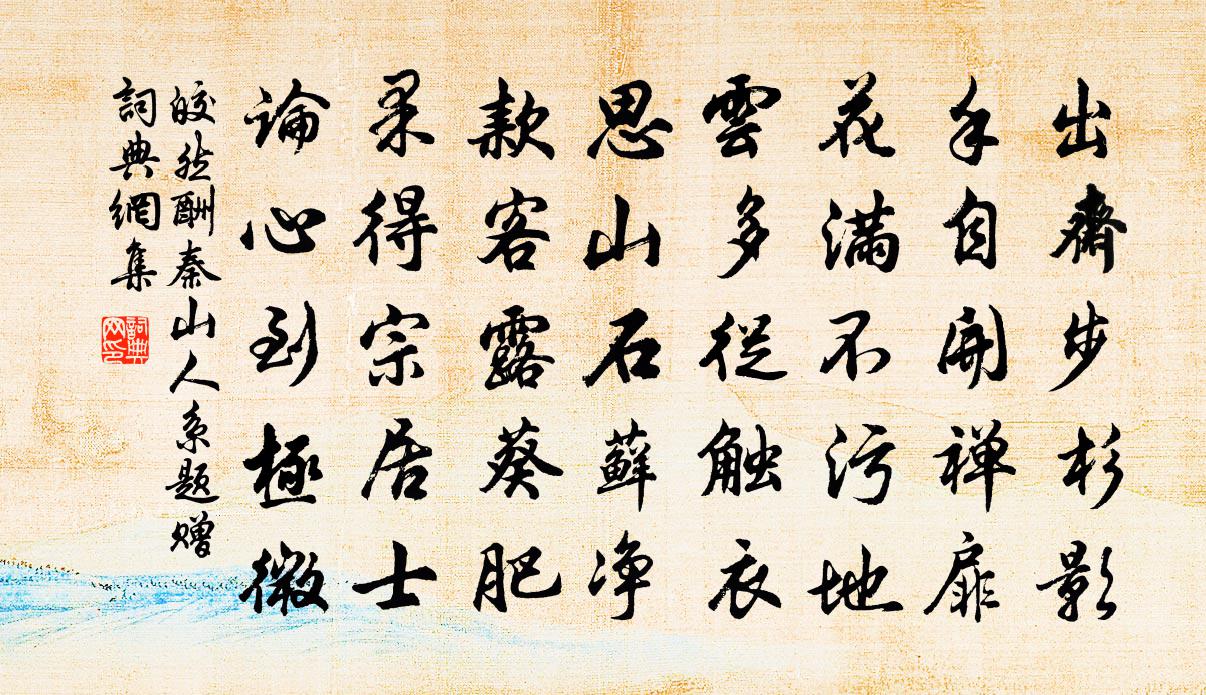 出齋步杉影
手自開禪扉
花滿不污地
雲多從觸衣
思山石蘚净
款客露葵肥
果得宗居士
論心到極微
皎然酬秦山人系題贈
詞典網集
詞典网印